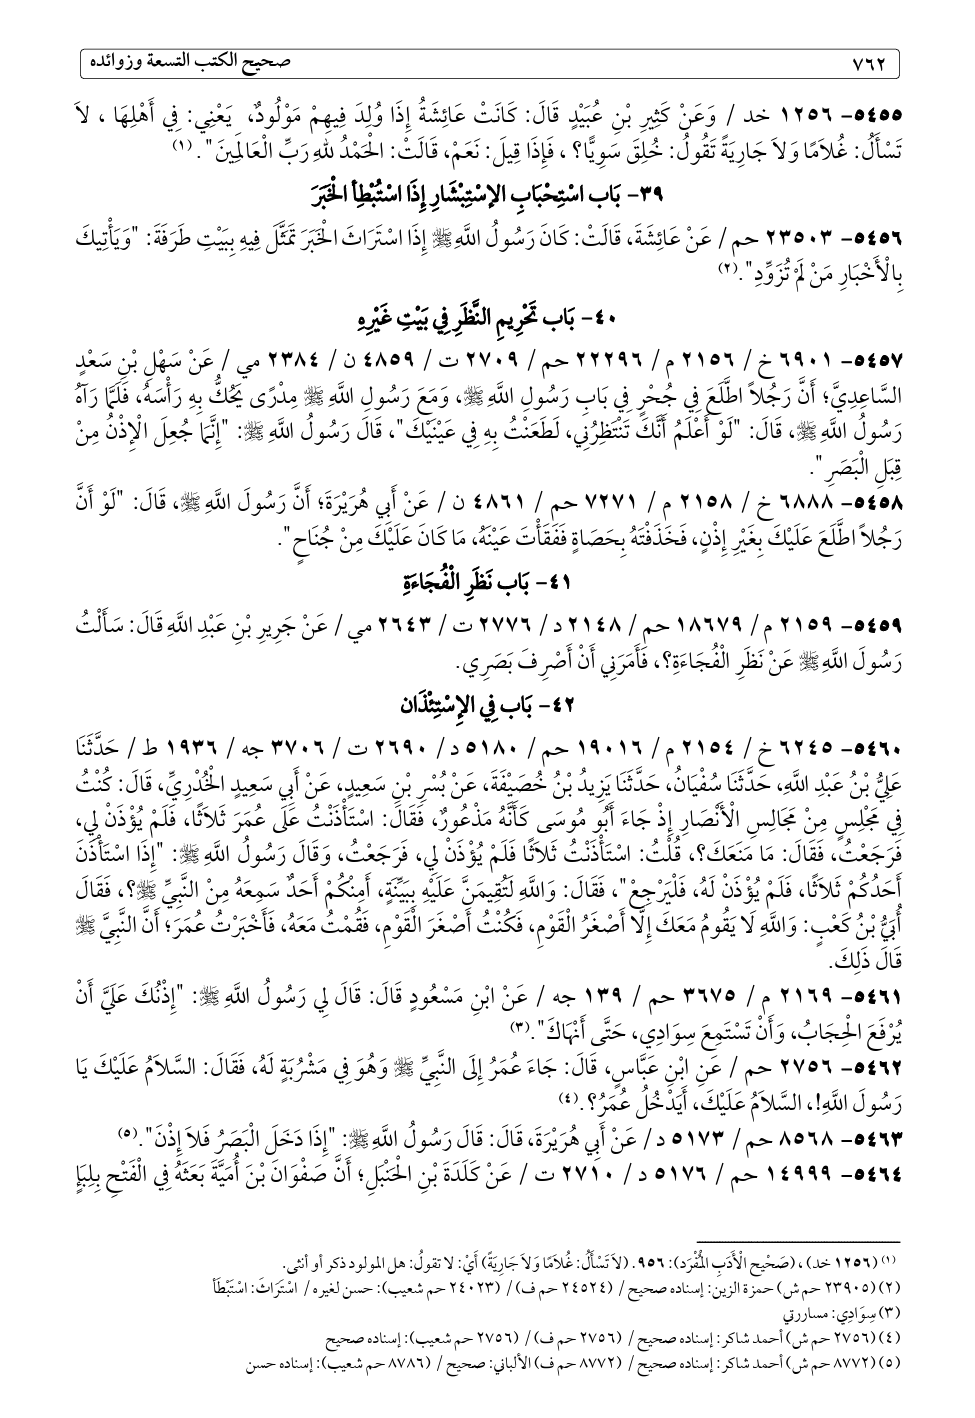 ٧٦٢ صحيح الكتب التسعة وزوائده
٥٤٥٥- ١٢٥٦ خد / وَعَنْ كَثِيرِ بْنِ عُبَيْدٍ قَالَ: كَانَتْ عَائِشَةُ إِذَا وُلِدَ فِيهِمْ مَوْلُودٌ، يَعْنِي: فِي أَهْلِهَا ، لاَ
تَسْأَلُ: غُلاَمًا وَلاَ جَارِيَةً تَقُولُ: خُلِقَ سَوِيًّا؟ ، فَإِذَا قِيلَ: نَعَمْ، قَالَتْ: الْحَمْدُ لِلهِ رَبِّ الْعَالَمِينَ" . (١)
٣٩- بَاب اسْتِحْبَابِ الإِسْتِبْشَارِ إِذَا اسْتُبْطِأَ الْخَبَرَ
٥٤٥٦- ٢٣٥٠٣ حم / عَنْ عَائِشَةَ، قَالَتْ: كَانَ رَسُولُ اللَّهِ ﷺ إِذَا اسْتَرَاثَ الْخَبَرَ تَمَثَّلَ فِيهِ بِبَيْتِ طَرَفَةَ: "وَيَأْتِيكَ
بِالْأَخْبَارِ مَنْ لَمْ تُزَوِّدِ". (٢)
٤٠- بَاب تَحْرِيمِ النَّظَرِ فِي بَيْتِ غَيْرِهِ
٥٤٥٧- ٦٩٠١ خ / ٢١٥٦ م / ٢٢٢٩٦ حم / ٢٧٠٩ ت / ٤٨٥٩ ن / ٢٣٨٤ مي / عَنْ سَهْلِ بْنِ سَعْدٍ
السَّاعِدِيَّ؛ أَنَّ رَجُلاً اطَّلَعَ فِي جُحْرٍ فِي بَابِ رَسُولِ اللَّهِ ﷺ، وَمَعَ رَسُولِ اللَّهِ ﷺ مِدْرًى يَحُكُّ بِهِ رَأْسَهُ، فَلَمَّا رَآهُ
رَسُولُ اللَّهِ ﷺ، قَالَ: "لَوْ أَعْلَمُ أَنَّكَ تَنْتَظِرُنِي، لَطَعَنْتُ بِهِ فِي عَيْنَيْكَ"، قَالَ رَسُولُ اللَّهِ ﷺ: "إِنَّمَا جُعِلَ الْإِذْنُ مِنْ
قِبَلِ الْبَصَرِ ".
٥٤٥٨- ٦٨٨٨ خ / ٢١٥٨ م / ٧٢٧١ حم / ٤٨٦١ ن / عَنْ أَبِي هُرَيْرَةَ؛ أَنَّ رَسُولَ اللَّهِ ﷺ، قَالَ: "لَوْ أَنَّ
رَجُلاً اطَّلَعَ عَلَيْكَ بِغَيْرِ إِذْنٍ، فَخَذَفْتَهُ بِحَصَاةٍ فَفَقَأْتَ عَيْنَهُ، مَا كَانَ عَلَيْكَ مِنْ جُنَاحٍ".
٤١- بَاب نَظَرِ الْفُجَاءَةِ
٥٤٥٩- ٢١٥٩ م / ١٨٦٧٩ حم / ٢١٤٨ د / ٢٧٧٦ ت / ٢٦٤٣ مي / عَنْ جَرِيرِ بْنِ عَبْدِ اللَّهِ قَالَ: سَأَلْتُ
رَسُولَ اللَّهِ ﷺ عَنْ نَظَرِ الْفُجَاءَةِ؟، فَأَمَرَنِي أَنْ أَصْرِفَ بَصَرِي.
٤٢- بَاب فِي الإِسْتِئْذَان
٥٤٦٠- ٦٢٤٥ خ / ٢١٥٤ م / ١٩٠١٦ حم / ٥١٨٠ د / ٢٦٩٠ ت / ٣٧٠٦ جه / ١٩٣٦ ط / حَدَّثَنَا
عَلِيُّ بْنُ عَبْدِ اللَّهِ، حَدَّثَنَا سُفْيَانُ، حَدَّثَنَا يَزِيدُ بْنُ خُصَيْفَةَ، عَنْ بُسْرِ بْنِ سَعِيدٍ، عَنْ أَبِي سَعِيدٍ الْخُدْرِيِّ، قَالَ: كُنْتُ
فِي مَجْلِسٍ مِنْ مَجَالِسِ الْأَنْصَارِ إِذْ جَاءَ أَبُو مُوسَى كَأَنَّهُ مَذْعُورٌ، فَقَالَ: اسْتَأْذَنْتُ عَلَى عُمَرَ ثَلَاثًا، فَلَمْ يُؤْذَنْ لِي،
فَرَجَعْتُ، فَقَالَ: مَا مَنَعَكَ؟، قُلْتُ: اسْتَأْذَنْتُ ثَلَاثًا فَلَمْ يُؤْذَنْ لِي، فَرَجَعْتُ، وَقَالَ رَسُولُ اللَّهِ ﷺ: "إِذَا اسْتَأْذَنَ
أَحَدُكُمْ ثَلَاثًا، فَلَمْ يُؤْذَنْ لَهُ، فَلْيَرْجِعْ"، فَقَالَ: وَاللَّهِ لَتُقِيمَنَّ عَلَيْهِ بِبَيِّنَةٍ، أَمِنْكُمْ أَحَدٌ سَمِعَهُ مِنْ النَّبِيِّ ﷺ؟، فَقَالَ
أُبَيُّ بْنُ كَعْبٍ: وَاللَّهِ لَا يَقُومُ مَعَكَ إِلَّا أَصْغَرُ الْقَوْمِ، فَكُنْتُ أَصْغَرَ الْقَوْمِ، فَقُمْتُ مَعَهُ، فَأَخْبَرْتُ عُمَرَ؛ أَنَّ النَّبِيَّ ﷺ
قَالَ ذَلِكَ.
٥٤٦١- ٢١٦٩ م / ٣٦٧٥ حم / ١٣٩ جه / عَنْ ابْنِ مَسْعُودٍ قَالَ: قَالَ لِي رَسُولُ اللَّهِ ﷺ: "إِذْنُكَ عَلَيَّ أَنْ
يُرْفَعَ الْحِجَابُ، وَأَنْ تَسْتَمِعَ سِوَادِي، حَتَّى أَنْهَاكَ". (٣)
٥٤٦٢- ٢٧٥٦ حم / عَنِ ابْنِ عَبَّاسٍ، قَالَ: جَاءَ عُمَرُ إِلَى النَّبِيِّ ﷺ وَهُوَ فِي مَشْرُبَةٍ لَهُ، فَقَالَ: السَّلاَمُ عَلَيْكَ يَا
رَسُولَ اللَّهِ!، السَّلاَمُ عَلَيْكَ، أَيَدْخُلُ عُمَرُ؟. (٤)
٥٤٦٣- ٨٥٦٨ حم / ٥١٧٣ د / عَنْ أَبِي هُرَيْرَةَ، قَالَ: قَالَ رَسُولُ اللَّهِ ﷺ: "إِذَا دَخَلَ الْبَصَرُ فَلاَ إِذْنَ". (٥)
٥٤٦٤- ١٤٩٩٩ حم / ٥١٧٦ د / ٢٧١٠ ت / عَنْ كَلَدَةَ بْنِ الْحَنْبَلِ؛ أَنَّ صَفْوَانَ بْنَ أُمَيَّةَ بَعَثَهُ فِي الْفَتْحِ بِلِبَإٍ
(١) (١٢٥٦ خد) ، (صَحِيْح الْأَدَبِ الْمُفْرَد): ٩٥٦. (لاَ تَسْأَلُ: غُلاَمًا وَلاَ جَارِيَةً) أَيْ: لا تقولُ: هل المولود ذكر أو أنثى.
(٢) (٢٣٩٠٥ حم ش) حمزة الزين: إسناده صحيح / (٢٤٥٢٤ حم ف) / (٢٤٠٢٣ حم شعيب): حسن لغيره / اسْتَرَاثَ: اسْتَبْطَأَ
(٣) سِوَادِي: مساررتي
(٤) (٢٧٥٦ حم ش) أحمد شاكر: إسناده صحيح / (٢٧٥٦ حم ف) / (٢٧٥٦ حم شعيب): إسناده صحيح
(٥) (٨٧٧٢ حم ش) أحمد شاكر: إسناده صحيح / (٨٧٧٢ حم ف) الألباني: صحيح / (٨٧٨٦ حم شعيب): إسناده حسن